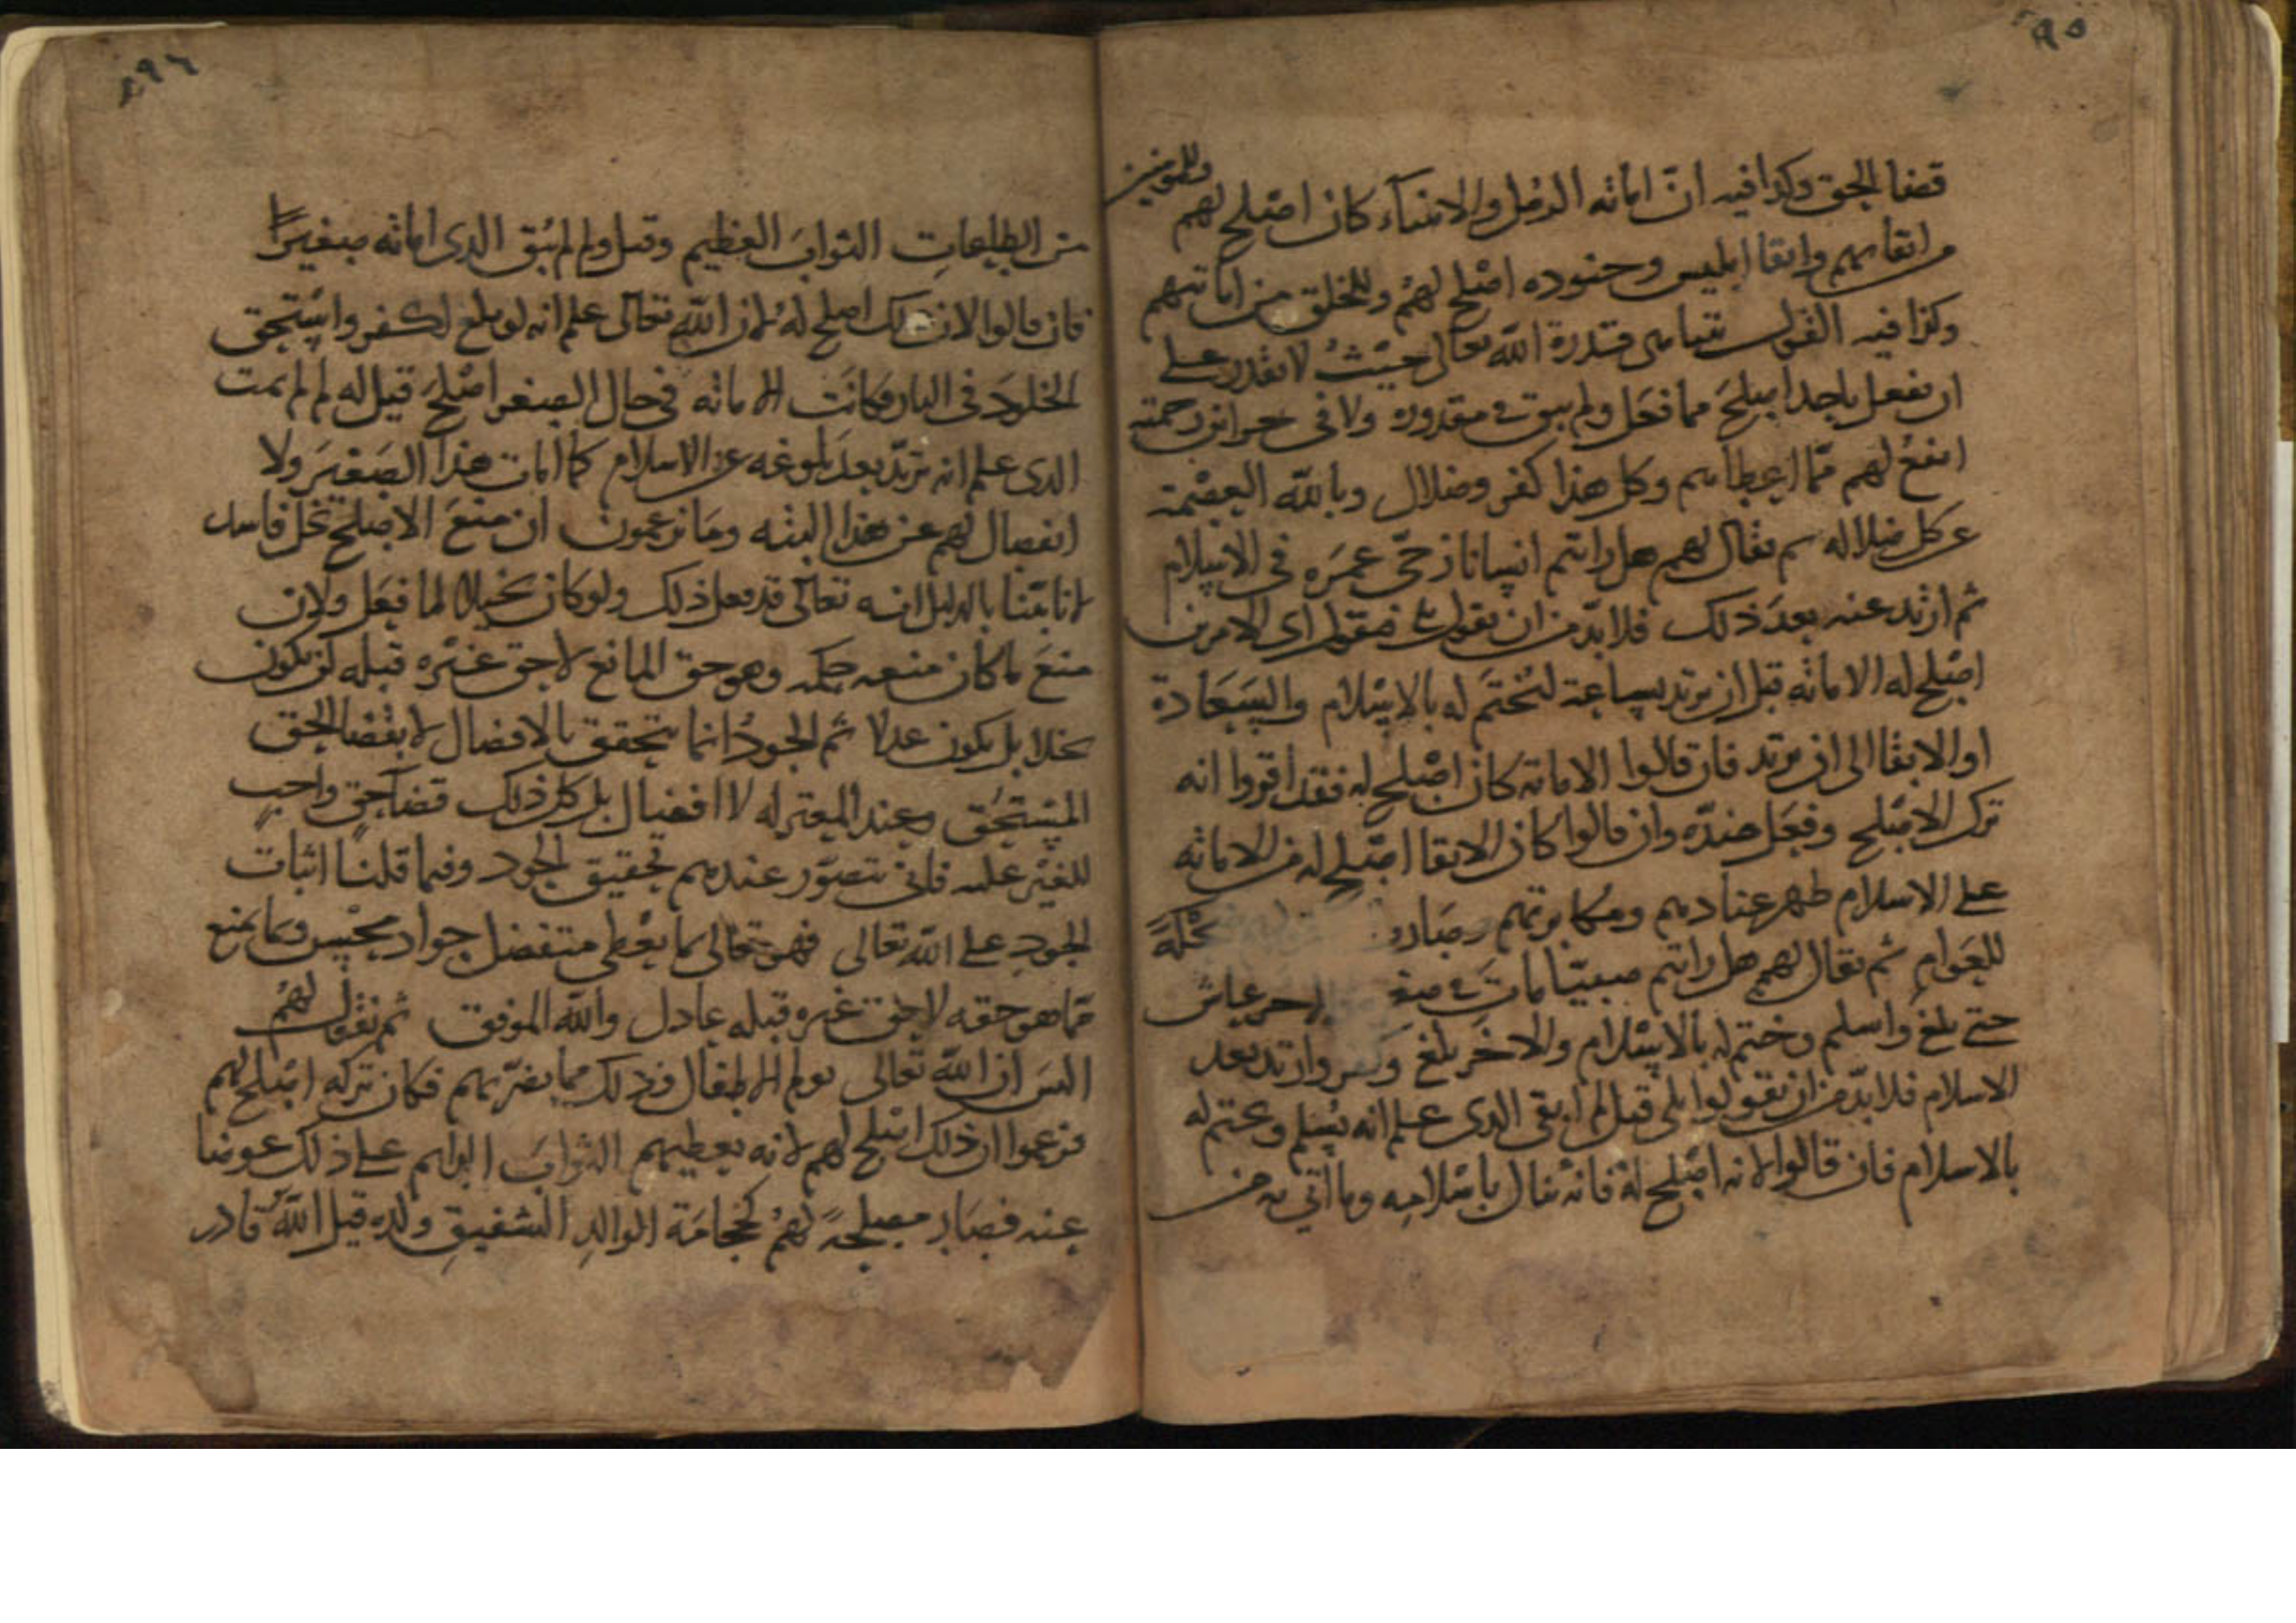 ٩٥
قضا الحق وكذا فيه ان اماته الرسل والانبياء كان اصلح لهم وللمومنين
من ابقايهم وابقا ابليس وجنوده اصلح لهم وللخلق من اماتتهم
وكذا فيه القول بتناهى قدرة الله تعالى حيث لا يقدر على
ان يفعل باحد اصلح مما فعل ولم يبق فى مقدوره ولا فى خزاين رحمته
انفع لهم مما اعطاهم وكل هذا كفر وضلال وبالله العصمة
عن كل ضلاله ثم يقال لهم هل رايتم انسانا زجى عمره فى الاسلام
ثم ارتد عنه بعد ذلك فلا بد من ان يقول بلى فيقول اى الامرين
اصلح له الاماته قبل ان يرتد بساعة لتختم له بالاسلام والسعادة
او الابقا الى ان يرتد فان قالوا الاماتة كان اصلح له فقد اقروا انه
ترك الاصلح وفعل ضده وان قالوا كان الابقا اصلح له من الاماته
على الاسلام ظهر عنادهم ومكابرتهم وصاروا ضحكة
للعوام ثم يقال لهم هل رايتم صبيا مات فى صغره والاخر عاش
حتى بلغ واسلم وختم له بالاسلام والاخر بلغ وكفر وارتد بعد
الاسلام فلا بد من ان يقولوا بلى قيل لم ابقى الذى علم انه يسلم ويختم له
بالاسلام فان قالوا لانه اصلح له فانه ينال باسلامه وما اتى به من
٩٦
من الطاعات الثواب العظيم وقيل ولم لم يبق الذى اماته صغيرا
فان قالوا لان ذلك اصلح له لان الله تعالى علم انه لو بلغ لكفر واستحق
الخلود فى النار فكانت الاماته فى حال الصغر اصلح قيل له لم لم يمت
الذى علم انه يرتد بعد بلوغه عن الاسلام كما امات هذا الصغير ولا
انفصال لهم عن هذا البته وما يزعمون ان منع الاصلح بخل فاسد
لانا بينا بالدليل انه تعالى قد فعل ذلك ولو كان بخيلا لما فعل ولان
منع ما كان منعه حكمه وهو حق المانع لا حق غيره قبله لن يكون
بخلا بل يكون عدلا ثم الجود انما يتحقق بالافضال لا بقضا الحق
المستحق وعند المعتزله لا افضال بل كل ذلك قضا حق واجب
للغير عليه فانى يتصور عندهم تحقيق الجود وفيما قلنا اثبات
الجود على الله تعالى فهو تعالى بما يعطى متفضل جواد محسن وبما يمنع
مما هو حقه لا حق غيره قبله عادل والله الموفق ثم نقول لهم
اليس ان الله تعالى يولم الاطفال وذلك مما يضر بهم فكان تركه اصلح لهم
فزعموا ان ذلك اصلح لهم لانه يعطيهم الثواب الدايم على ذلك عوضا
عنه فصار مصلحة لهم كحجامة الوالد الشفيق ولده قيل الله قادر